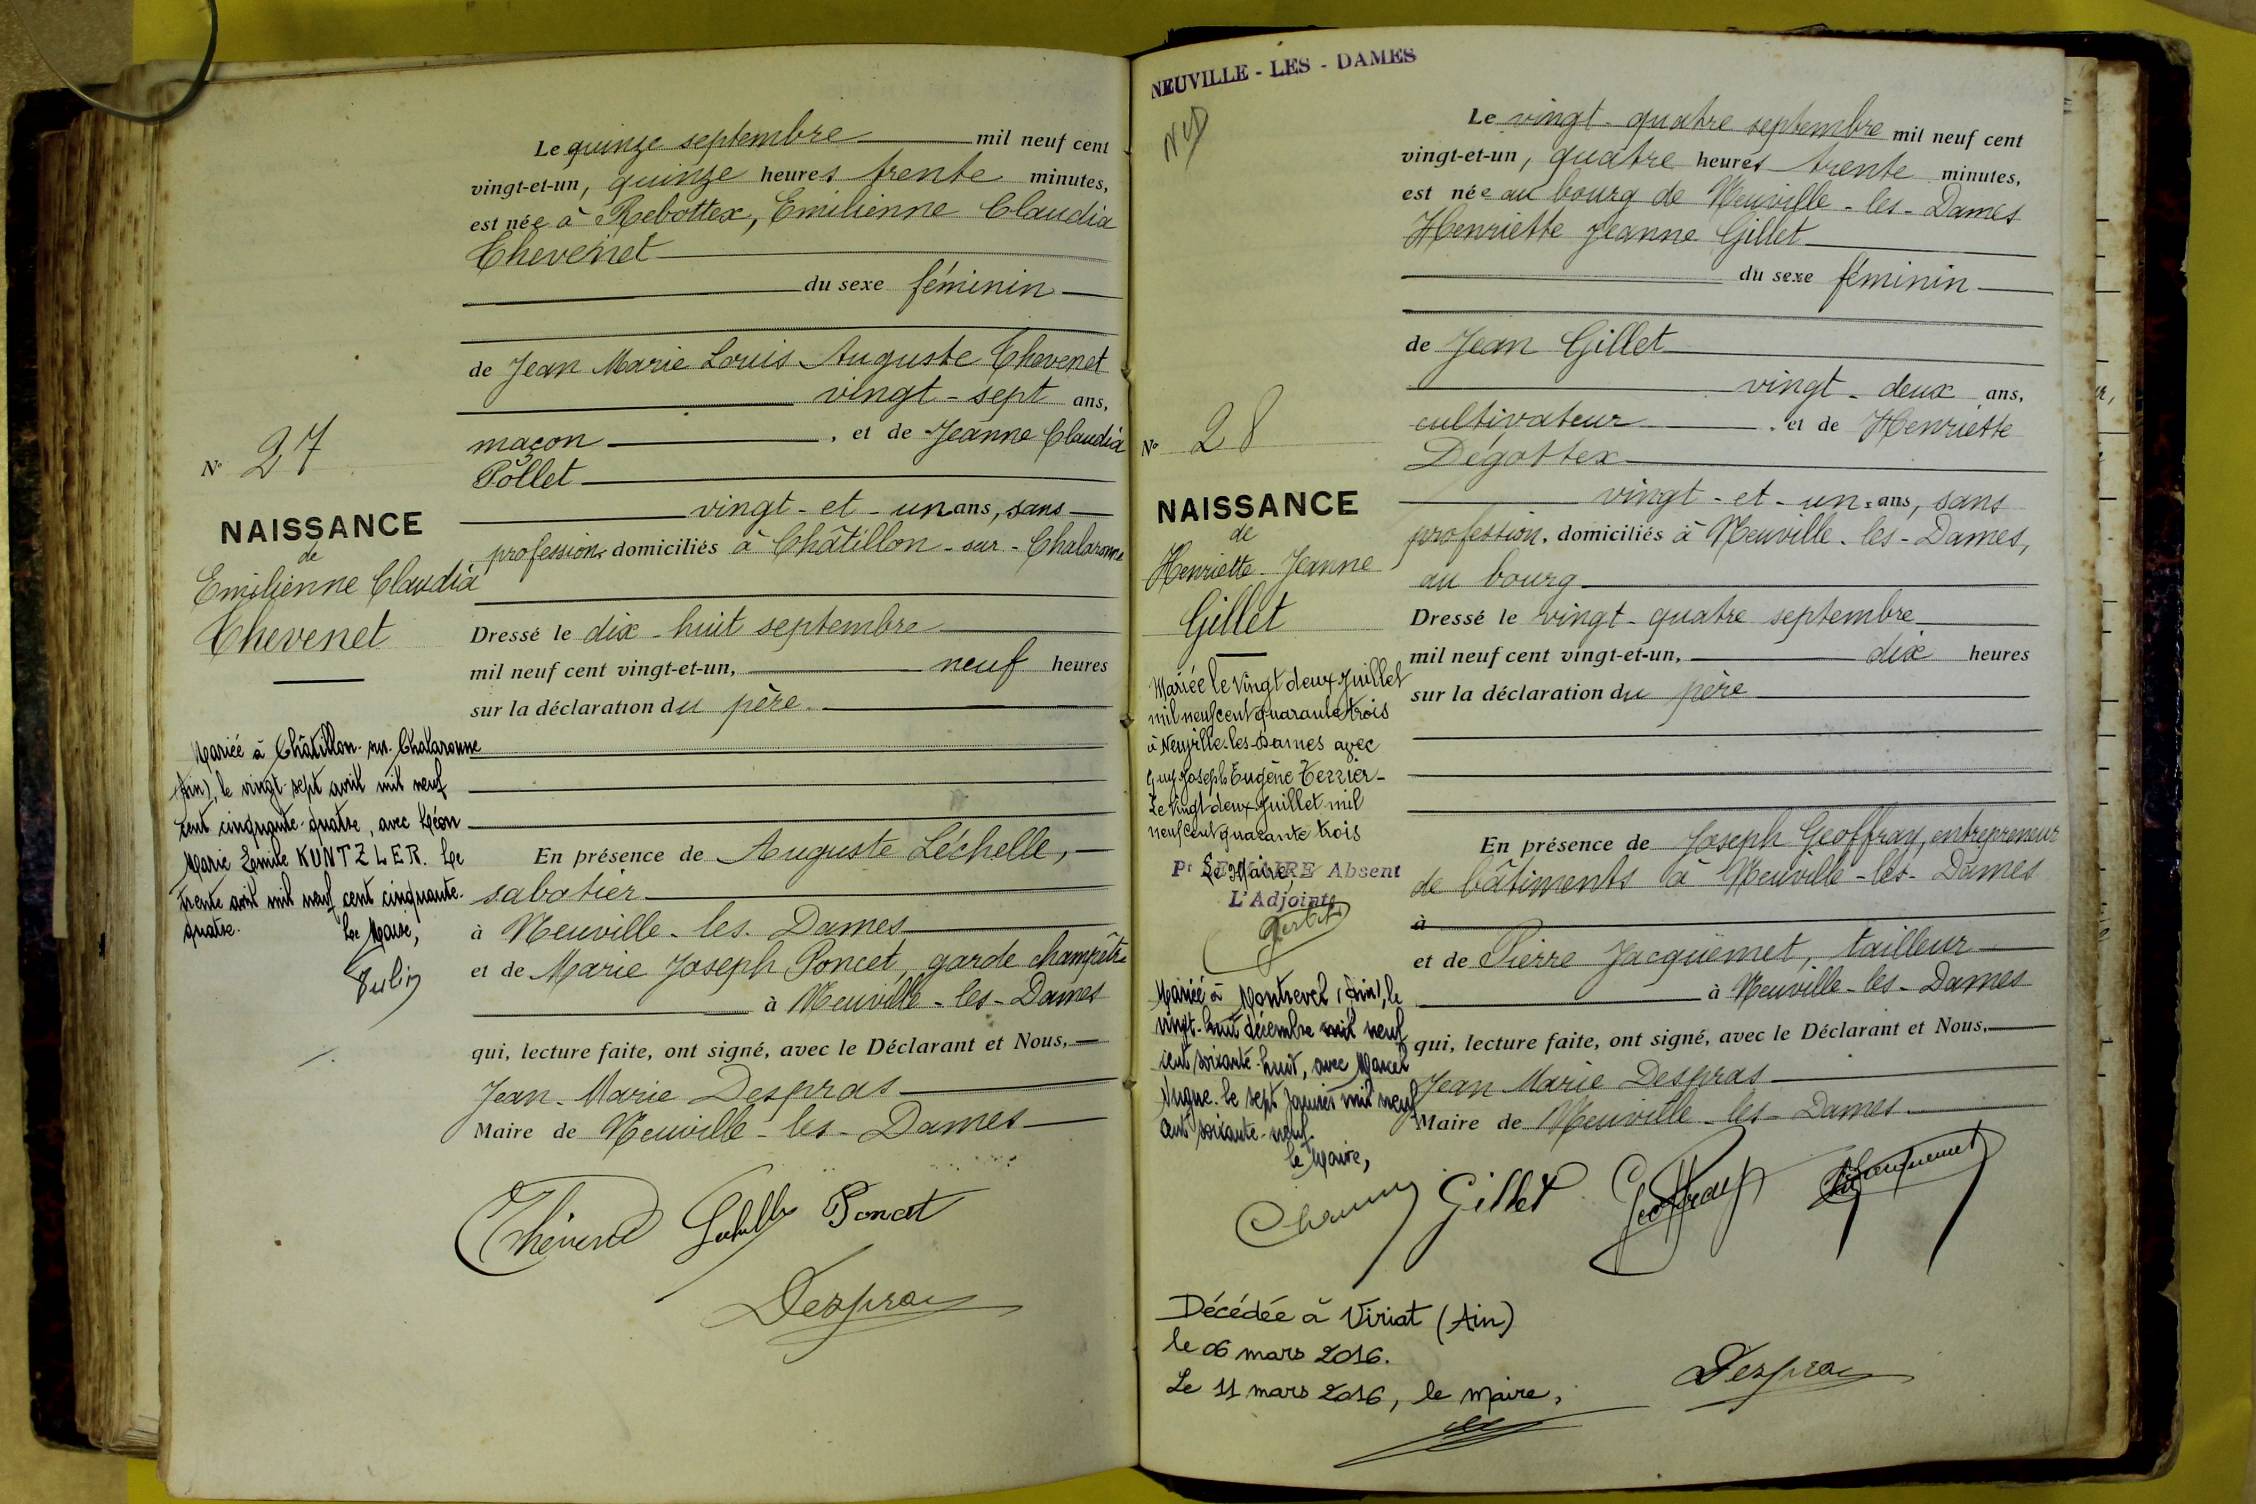 Le quinze septembre mil neuf cent
vingt-et-un, quinze heures trente minutes,
est née à Rebottex, Emilienne Claudia
Chevenet
du sexe féminin
de Jean Marie Louis Auguste Chevenet
vingt-sept ans,
maçon, et de Jeanne Claudia
Pollet
vingt-et-un ans, sans
profession, domiciliés à Châtillon-sur-Chalaronne
Dressé le dix-huit septembre
mil neuf cent vingt-et-un, neuf heures
sur la déclaration du père.
En présence de Auguste Léchelle,
sabotier
à Neuville-les-Dames
et de Marie Joseph Poncet, garde champêtre
à Neuville-les-Dames
qui, lecture faite, ont signé, avec le Déclarant et Nous,
Jean-Marie Despras
Maire de Neuville-les-Dames
Poncet
Despras
N° 27
NAISSANCE
de
Emilienne Claudia
Chevenet
Mariée à Châtillon-sur-Chalaronne
(Ain), le vingt-sept avril mil neuf
cent cinquante-quatre, avec Léon
Marie Emile KUNTZLER. Le
trente avril mil neuf cent cinquante-
quatre.
Le Maire,
NEUVILLE-LES-DAMES
N° 28
NAISSANCE
de
Henriette Jeanne
Gillet
Mariée le vingt deux juillet
mil neuf cent quarante trois
à Neuville-les-Dames avec
Guy Joseph Eugène Terrier-
Le vingt deux juillet mil
neuf cent quarante trois
Le Maire,
Pr LE MAIRE Absent
L'Adjoint
Mariée à Montrevel (Ain), le
vingt-huit décembre mil neuf
cent soixante-huit, avec Marcel
Le sept janvier mil neuf
cent soixante-neuf.
Le Maire,
Le vingt-quatre septembre mil neuf cent
vingt-et-un, quatre heures trente minutes,
est née au bourg de Neuville-les-Dames
Henriette Jeanne Gillet
du sexe féminin
de Jean Gillet
vingt-deux ans,
cultivateur, et de Henriette
Dégottex
vingt-et-un ans, sans
profession, domiciliés à Neuville-les-Dames,
au bourg
Dressé le vingt-quatre septembre
mil neuf cent vingt-et-un, dix heures
sur la déclaration du père
En présence de Joseph Geoffray, entrepreneur
de bâtiments à Neuville-les-Dames
à
et de Pierre Jacquemet, tailleur
à Neuville-les-Dames
qui, lecture faite, ont signé, avec le Déclarant et Nous,
Jean Marie Despras
Maire de Neuville-les-Dames
Gillet Geoffray Jacquemet
Décédée à Viriat (Ain)
le 06 mars 2016.
Le 11 mars 2016, le maire,
Despras